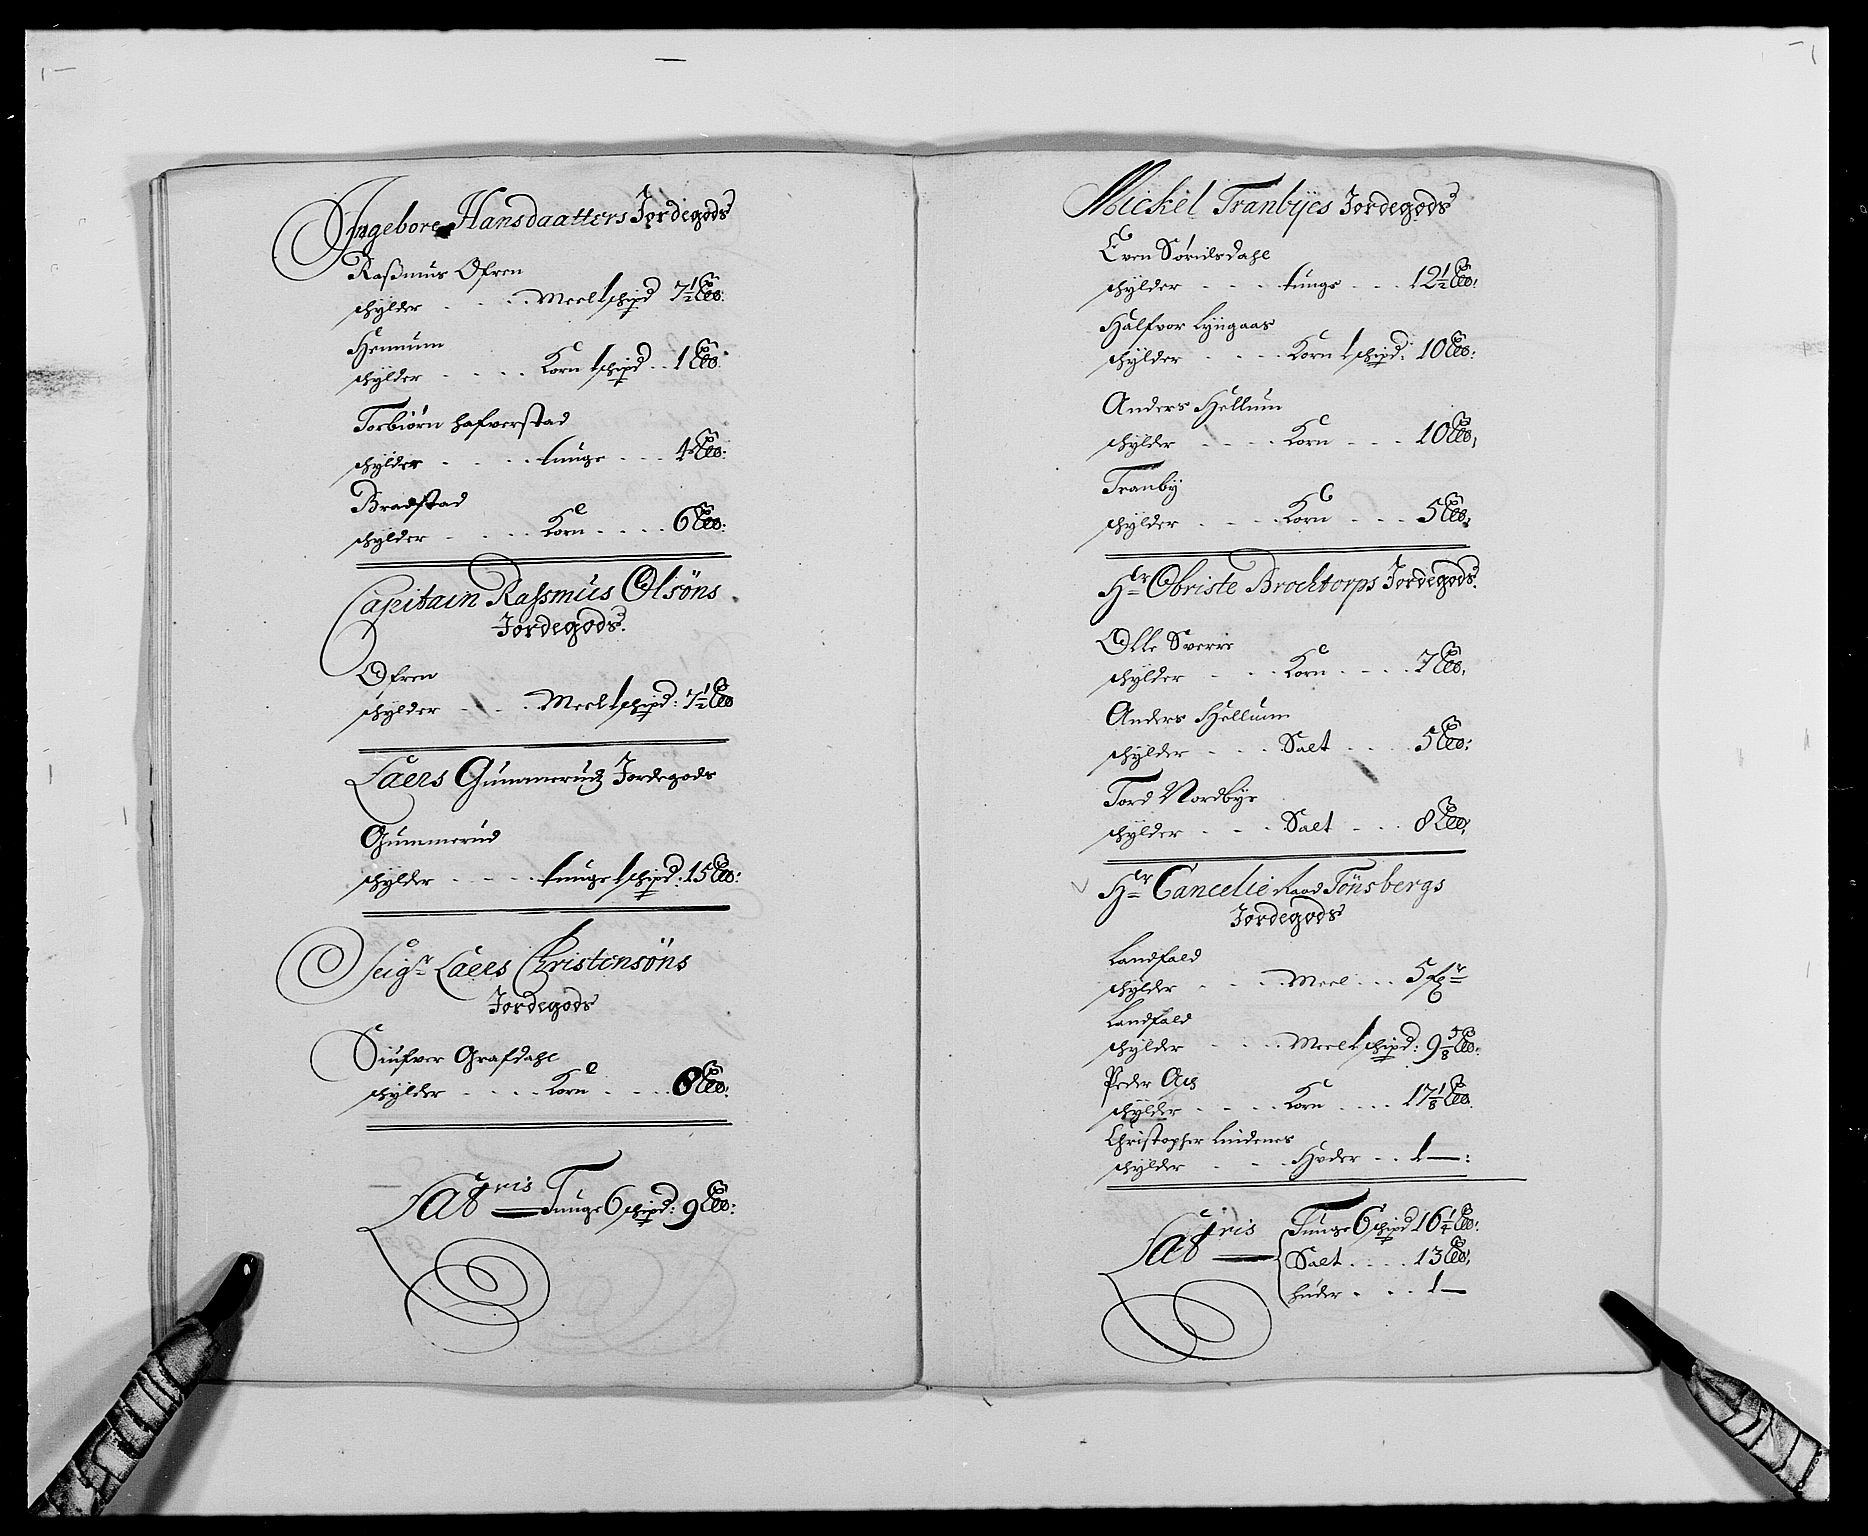 Ingebore Hansdaatters Jordegods
Rasmus Ofren
schylder . . . . Meel 1 schipd 7 1/2 Lb:
Hemum
schylder . . . . Korn 1 schipd . . 1 Lb:
Torbiörn hafverstad
schylder . . . . tunge . . . 4 Lb:
Bradstad
schylder . . . . Korn . . . . 6 Lb:
Capitain Rassmus Olsöns
Jordegods.
Ofren
schylder . . . . Meel 1 schipd: 7 1/2 Lb
Laers Gummerudz Jordegods
Gummerud
schylder . . . . tunge 1 schipd: 15 Lb:
Seigr Laers Christensöns
Jordegods
Siufver Grafdahl
schylder . . . . Korn . . . . 8 Lb:
Latris Tunge 6 schipd: 9 Lb:
Mickel Tranbyes Jordegods
Even
schylder . . . . tunge . . . 12 1/2 Lb:
Halfvor Lyngaas
schylder . . . . Korn 1 schipd: 10 Lb:
Anders Hellum
schylder . . . . Korn . . . 10 Lb;
Tranby
schylder . . . . Korn . . . 5 Lb;
Hr Obriste Brochtorps Jordegods.
Olle Sverre
schylder . . . Korn . . . . 7 Lb.
Anders Hellum
schylder . . . Salt . . . . 5 Lb:
Tord Nordbye
schylder . . . Salt . . . 8 Lb;
Hr Cancelie Raad Tönsbergs
Jordegods
Landfald
schylder . . . . Meel . . . 5
Landfald
schylder . . . . Meel 1 schipd: 9 5/8 Lb:
Peder
schylder . . . . Korn . . . . 17 1/8 Lb.
Christopher Lindenes
schylder . . . Huder . . 1 — :
Latris Tunge 6 schipd 16 1/4 Lb:
Salt . . . . 13 Lb;
huder . . . 1 —